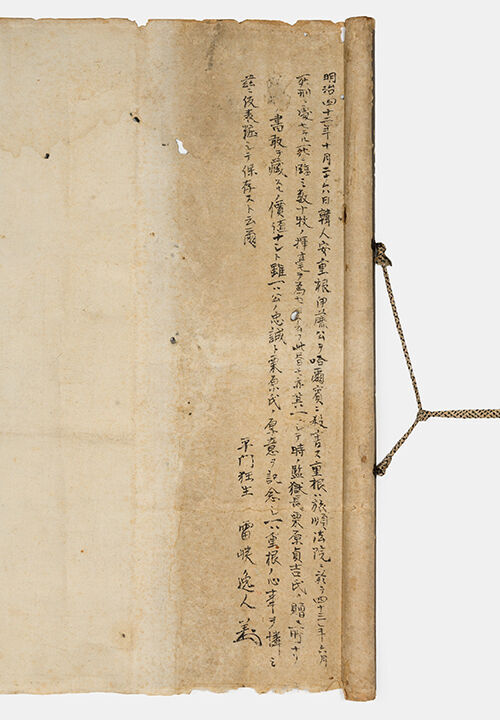 明治四十二年十月二十六日韓人安重根伊藤公ヲ哈爾賓ニ殺害ス重根ハ旅順法院ニ於テ四十三年六月
死刑ニ處セラル死ニ臨ミ数十枚ノ揮毫ヲ為セリ云フ此書モ亦其一ニシテ時ノ監獄長栗原貞吉氏ノ贈ル所ナリ
書敢テ藏スルノ價値ナシト雖一ハ公ノ忠誠ト栗原氏ノ原意ヲ記念シ一ハ重根ノ心事ヲ憐ミ
茲ニ仮表装シテ保存スト云爾
平門狂生 雷峡逸人